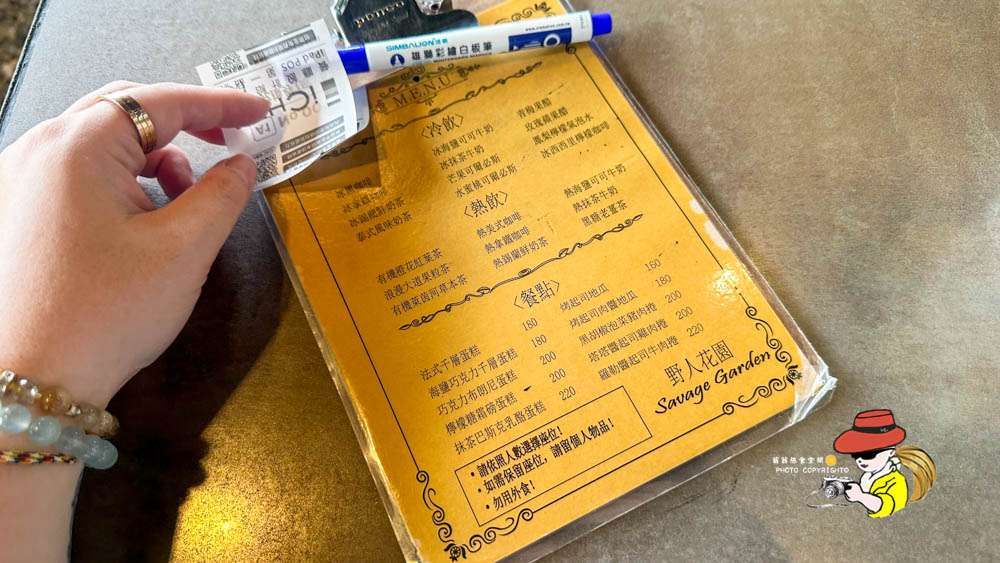 SIMBALION 雄獅
雄獅彩繪白板筆
WHITEBOARD MARKER
iPad POS
iCH
MENU
〈冷飲〉
冰海鹽可可牛奶
冰抹茶牛奶
芒果可爾必斯
水蜜桃可爾必斯
青梅果醋
玫瑰蘋果醋
鳳梨檸檬氣泡水
冰西西里檸檬咖啡
冰拿鐵咖啡
冰錫蘭鮮奶茶
泰式風味奶茶
〈熱飲〉
有機橙花紅葉茶
浪漫大道果粒茶
有機萊茵河草本茶
熱美式咖啡
熱拿鐵咖啡
熱錫蘭鮮奶茶
熱海鹽可可牛奶
熱抹茶牛奶
黑糖老薑茶
〈餐點〉
法式千層蛋糕 180
海鹽巧克力千層蛋糕 180
巧克力布朗尼蛋糕 200
檸檬糖霜磅蛋糕 200
抹茶巴斯克乳酪蛋糕 220
烤起司地瓜 160
烤起司肉醬地瓜 180
黑胡椒泡菜豬肉捲 200
塔塔醬起司雞肉捲 200
羅勒醬起司牛肉捲 220
野人花園
Savage Garden
•請依照人數選擇座位！
•如需保留座位，請留個人物品！
•勿用外食！
PHOTO COPYRIGHTO